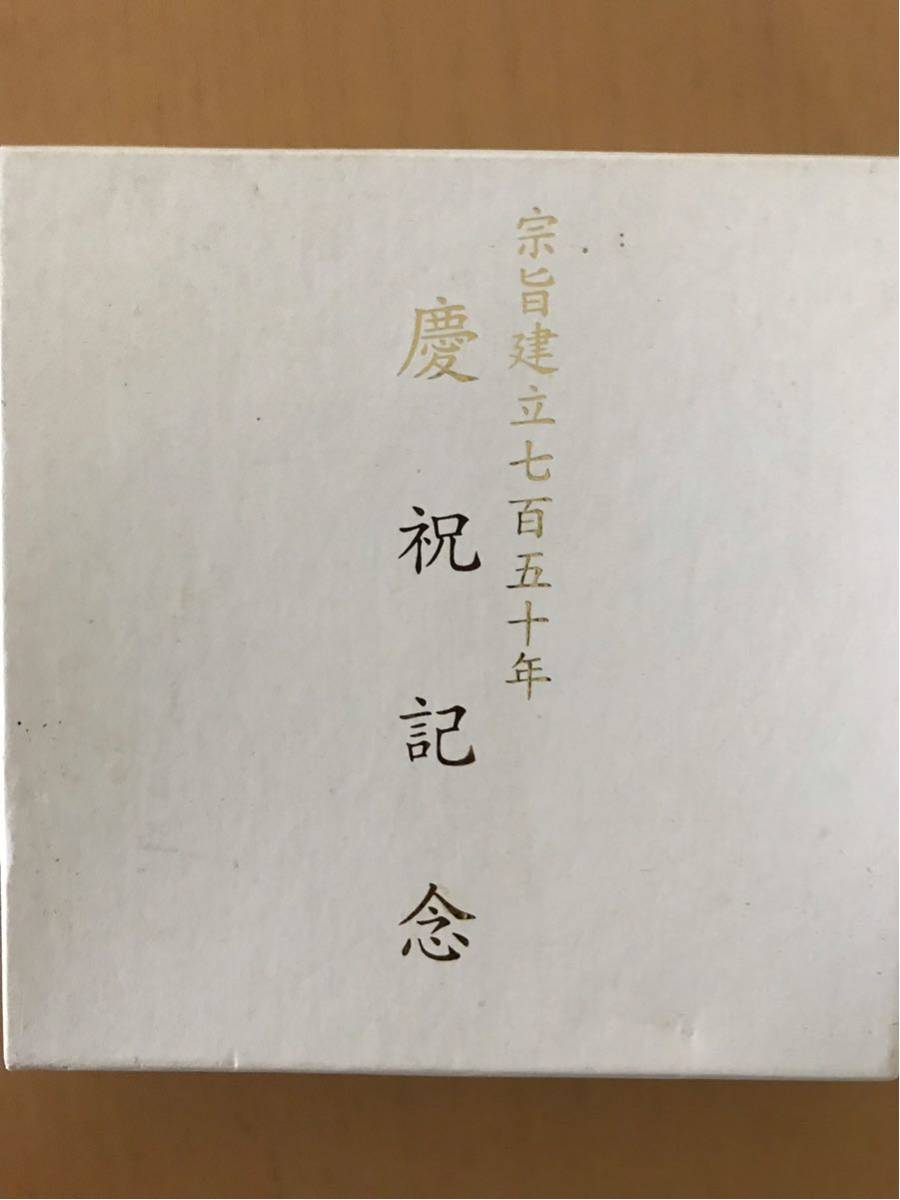 宗旨建立七百五十年
慶祝記念